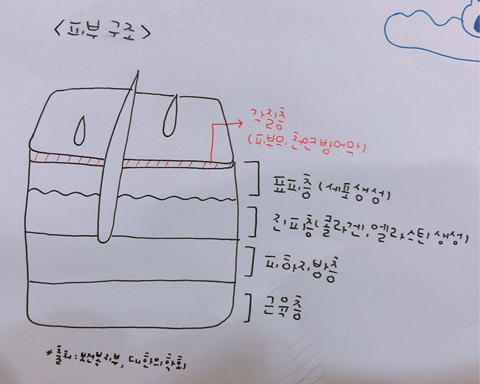 <피부 구조>
각질층
(피부의 천연 방어막)
표피층 (세포생성)
진피층 (콜라겐, 엘라스틴 생성)
피하지방층
근육층
*출처 : 보건복지부, 대한의학회